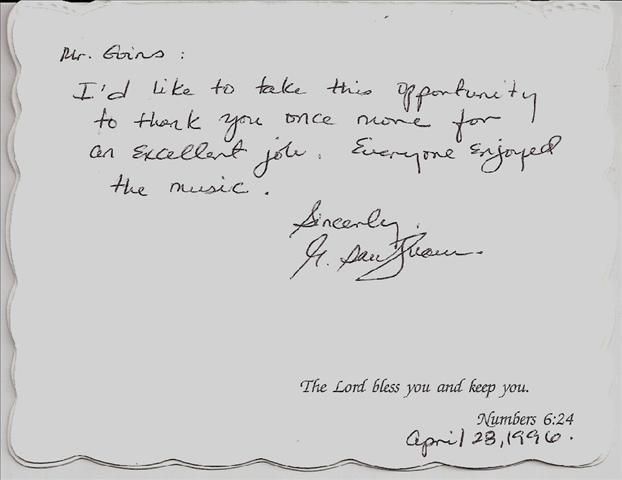 Mr. Goins :
I'd like to take this opportunity
to thank you once more for
an excellent job. Everyone enjoyed
the music.
Sincerely,
The Lord bless you and keep you.
Numbers 6:24
April 28, 1996.